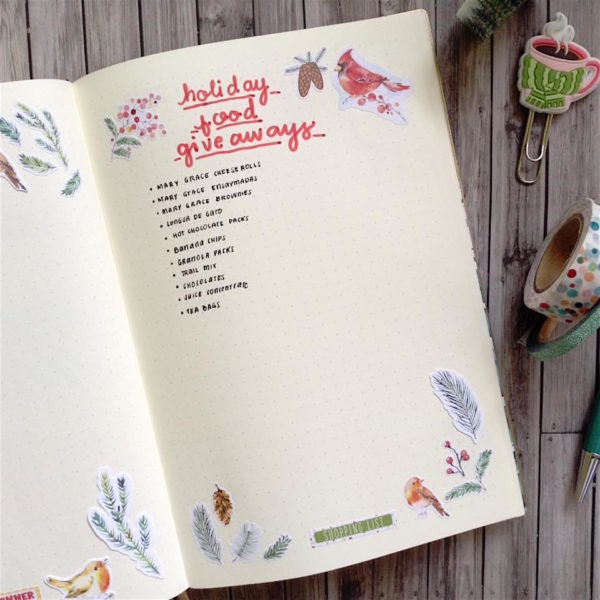 holiday
food
give aways
• MARY GRACE CHEESEROLLS
• MARY GRACE ENSAYMADAS
• MARY GRACE BROWNIES
• LENGUA DE GATO
• HOT CHOCOLATE PACKS
• BANANA CHIPS
• GRANOLA PACKS
• TRAIL MIX
• CHOCOLATES
• JUICE CONCENTRATE
• TEA BAGS
SHOPPING LIST
NNER